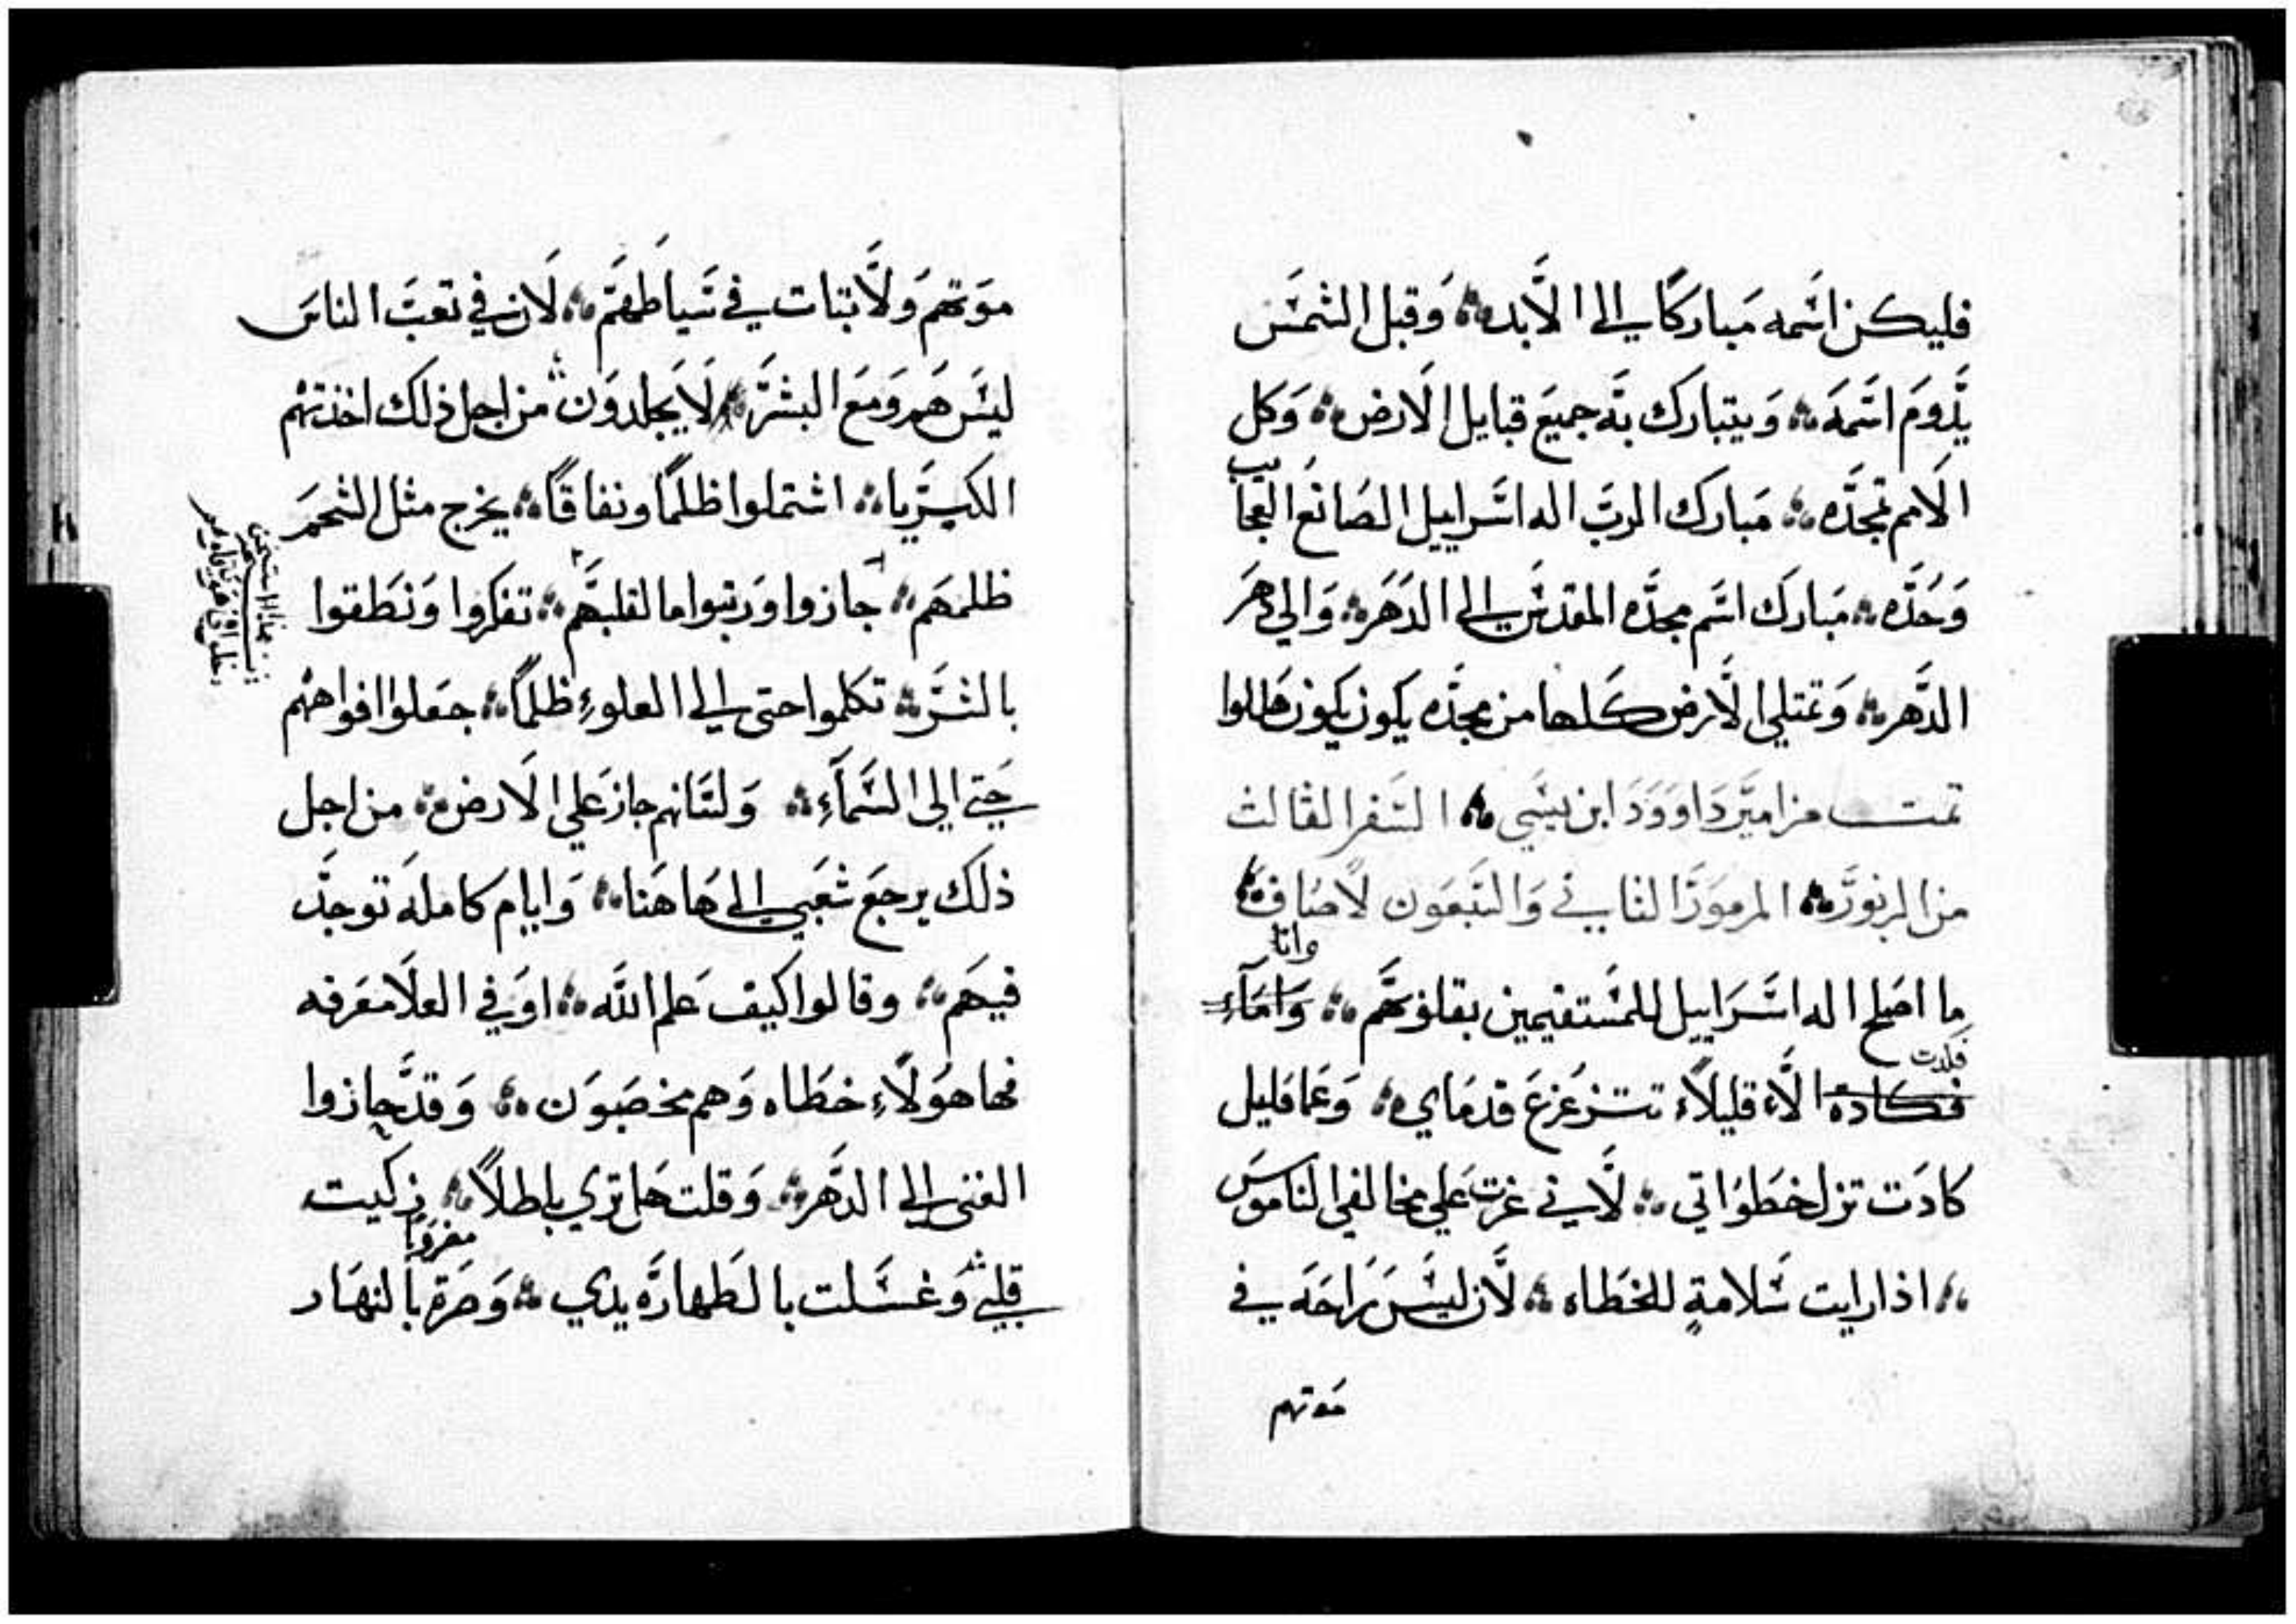 فليكن اسمه مباركا الي الابد ؞ وقبل الشمس
يدوم اسمه ؞ ويتبارك به جميع قبايل الارض ؞ وكل
الامم تمجده ؞ مبارك الرب اله اسراييل الصانع العجايب
وحده ؞ مبارك اسم مجده المقدس الي الدهر ؞ والي دهر
الدهر ؞ وتمتلي الارض كلها من مجده يكون يكون هللوا
تمت مزامير داوود ابن يسي ؞ السفر الثالث
من الزبور ؞ المزمور الثاني والسبعون لاصاف
وانا
ما اصلح اله اسراييل للمستقيمين بقلوبهم ؞ واماء
فكادت
فكادة الا قليلاء تتزعزع قدماي ؞ وعما قليل
كادت تزل خطواتي ؞ لاني غرت علي مخالفي الناموس
؞ اذا رايت سلامة للخطاه ؞ لان ليس راحه في
موتهم
موتهم ولا تبات في سياطهم ؞ لان في تعب الناس
ليس هم ومع البشر ؞ لا يجلدون ؞ من اجل ذلك اخذتهم
الكبريا ؞ اشتملوا ظلما ونفاقا ؞ يخرج مثل الشحم
ظلمهم ؞ جازوا ورتبوا ما لقلبهم ؞ تفكروا ونطقوا
بالشر ؞ تكلموا حتي الي العلوء ظلما ؞ جعلوا افواههم
حتي الي السماء ؞ ولسانهم جاز علي الارض ؞ من اجل
ذلك يرجع شعبي الي هاهنا ؞ وايام كامله توجد
فيهم ؞ وقالوا كيف علم الله ؞ او في العلا معرفه
فها هولاء خطاه وهم مخصبون ؞ وقد حازوا
الغني الي الدهر ؞ وقلت هل تري باطلا ؞ زكيت
مضروبا
قلبي وغسلت بالطهاره يدي ؞ وصرة بالنهار